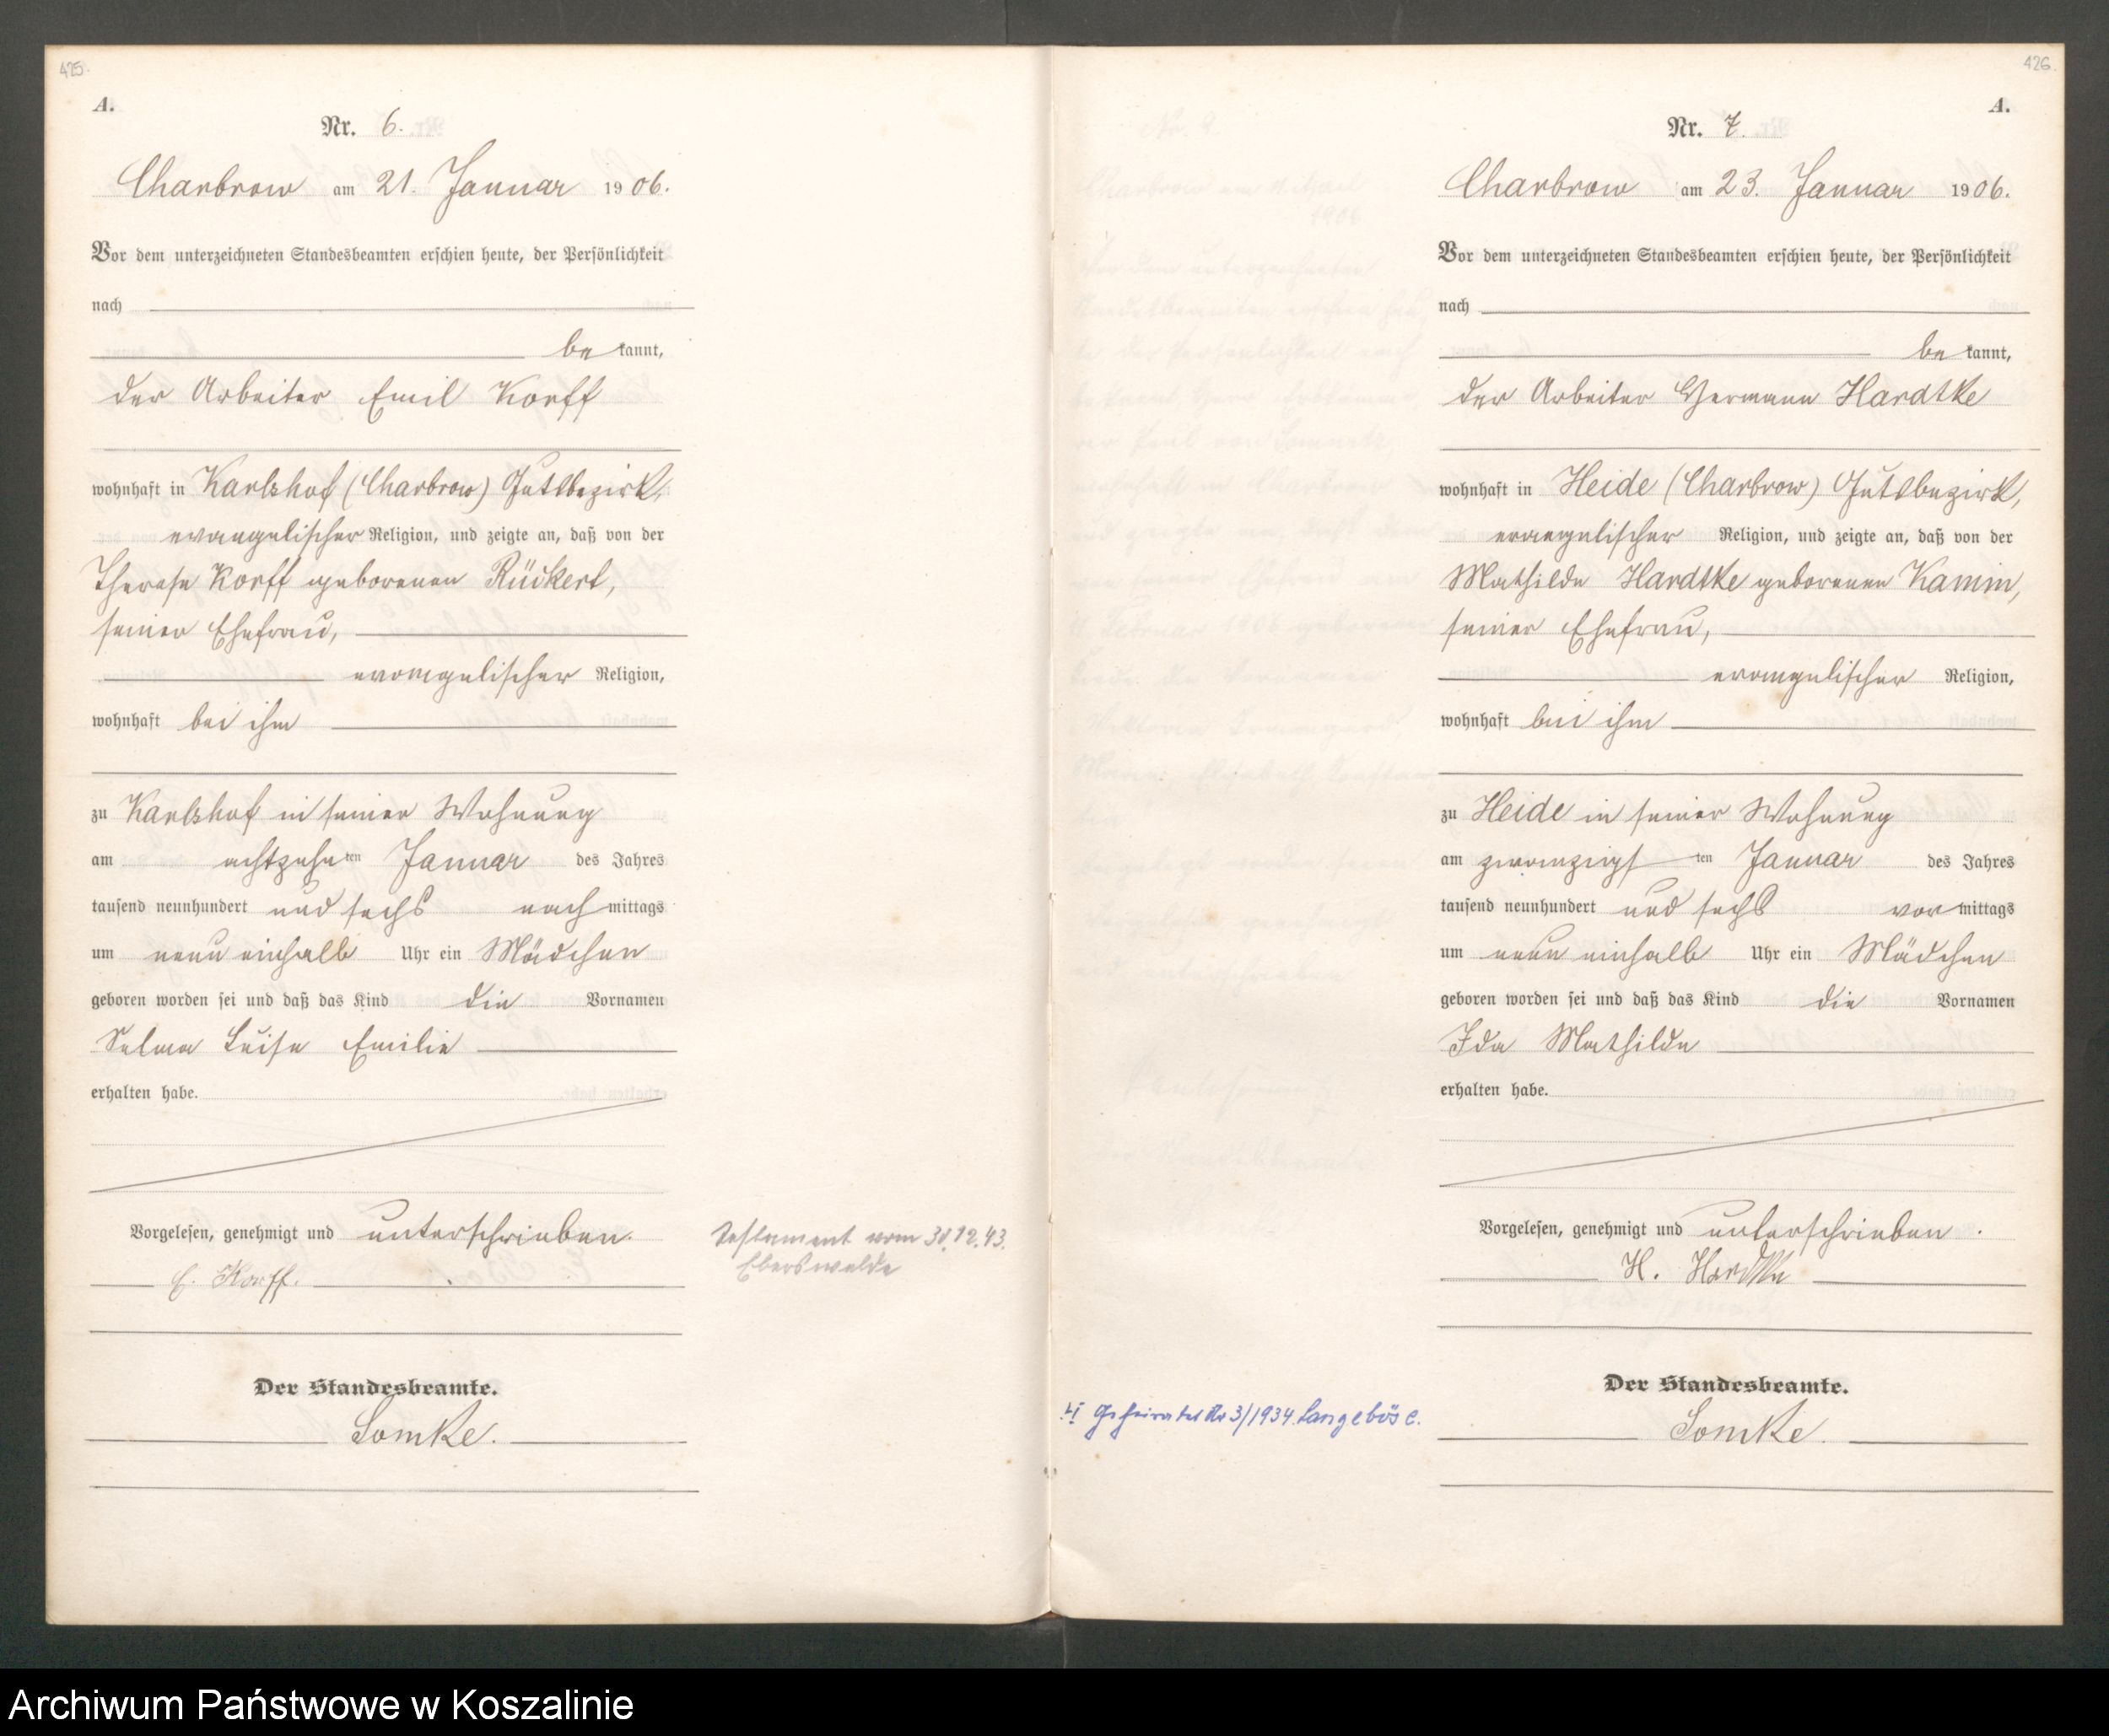 425.
A.
Nr. 6.
Charbrow am 21. Januar 1906.
Vor dem unterzeichneten Standesbeamten erschien heute, der Persönlichkeit
nach
be kannt,
der Arbeiter Emil Korff
wohnhaft in Karlshof (Charbrow) Gutsbezirk,
evangelischer Religion, und zeigte an, daß von der
Therese Korff geborenen Rückert,
seiner Ehefrau,
evangelischer Religion,
wohnhaft bei ihm
zu Karlshof in seiner Wohnung
am achtzehnten Januar des Jahres
tausend neunhundert und sechs nachmittags
um neun einhalb Uhr ein Mädchen
geboren worden sei und daß das Kind die Vornamen
Selma Luise Emilie
erhalten habe.
Vorgelesen, genehmigt und unterschrieben.
E. Korff.
Der Standesbeamte.
Somke.
Testament vom 30.12.43.
Eberswalde
426.
A.
Nr. 7.
Charbrow am 23. Januar 1906.
Vor dem unterzeichneten Standesbeamten erschien heute, der Persönlichkeit
nach
be kannt,
der Arbeiter Hermann Hardtke
wohnhaft in Heide (Charbrow) Gutsbezirk,
evangelischer Religion, und zeigte an, daß von der
Mathilde Hardtke geborenen Kamin,
seiner Ehefrau,
evangelischer Religion,
wohnhaft bei ihm
zu Heide in seiner Wohnung
am zwanzigsten Januar des Jahres
tausend neunhundert und sechs vormittags
um neun einhalb Uhr ein Mädchen
geboren worden sei und daß das Kind die Vornamen
Ida Mathilde
erhalten habe.
Vorgelesen, genehmigt und unterschrieben.
H. Hardtke
Der Standesbeamte.
Somke.
Geheiratet Nr 3/1934. Langeböse.
Archiwum Państwowe w Koszalinie